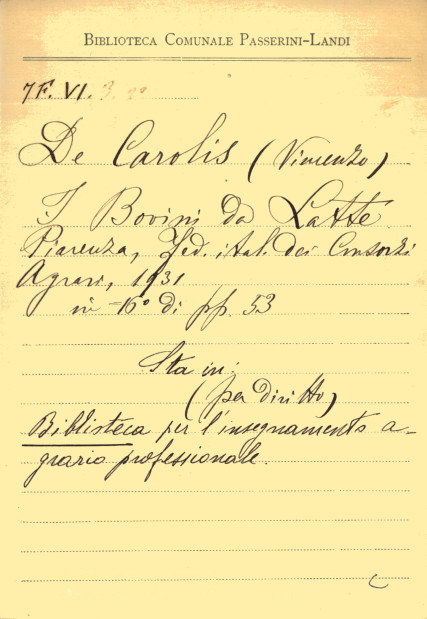 BIBLIOTECA COMUNALE PASSERINI-LANDI
7F. VI. 3.
De Carolis (Vincenzo)
I Bovini da Latte.
Piacenza, Fed. ital. dei Consorzi
Agrari, 1931
in -16° di pp. 53
Sta in:
(per diritto)
Biblioteca per l'insegnamento a-
grario professionale.